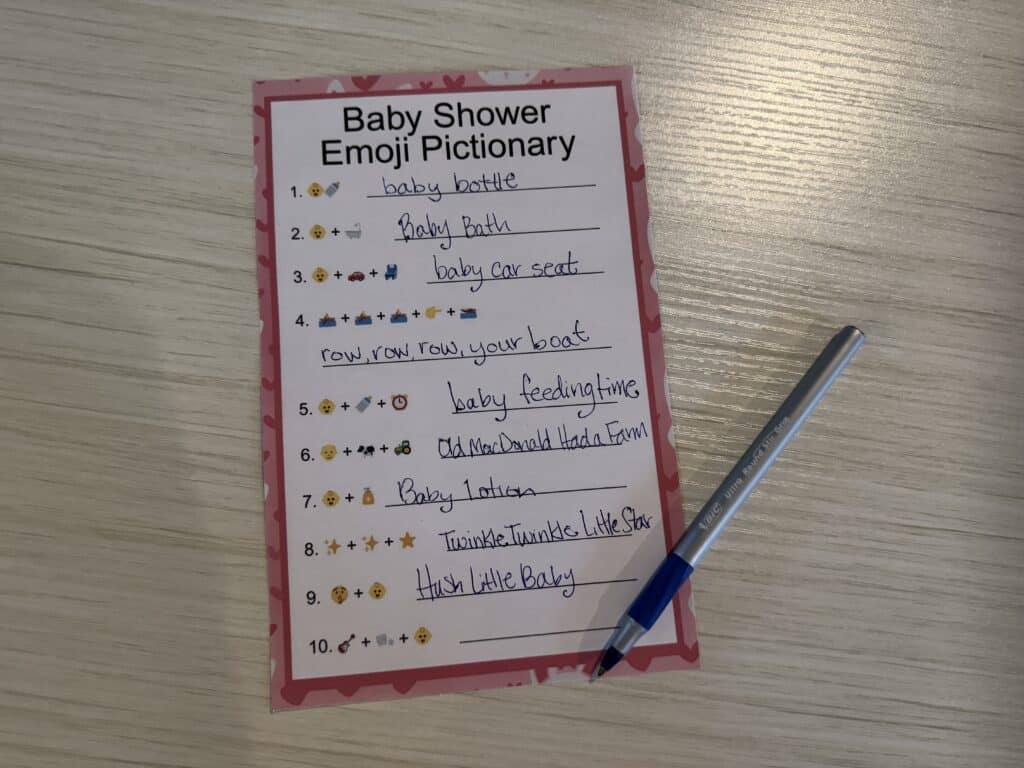 Baby Shower
Emoji Pictionary
1. 👶🍼 baby bottle
2. 👶 + 🛁 Baby Bath
3. 👶 + 🚗 + 💺 baby car seat
4. 🚣 + 🚣 + 🚣 + 👉 + 🛶
row, row, row, your boat
5. 👶 + 🍼 + ⏰ baby feeding time
6. 👴 + 🐄 + 🚜 Old MacDonald Had a Farm
7. 👶 + 🧴 Baby Lotion
8. ✨ + ✨ + ⭐ Twinkle Twinkle Little Star
9. 🤫 + 👶 Hush Little Baby
10. 🎸 + 🪨 + 👶
BIC Ultra Round Stic Grip